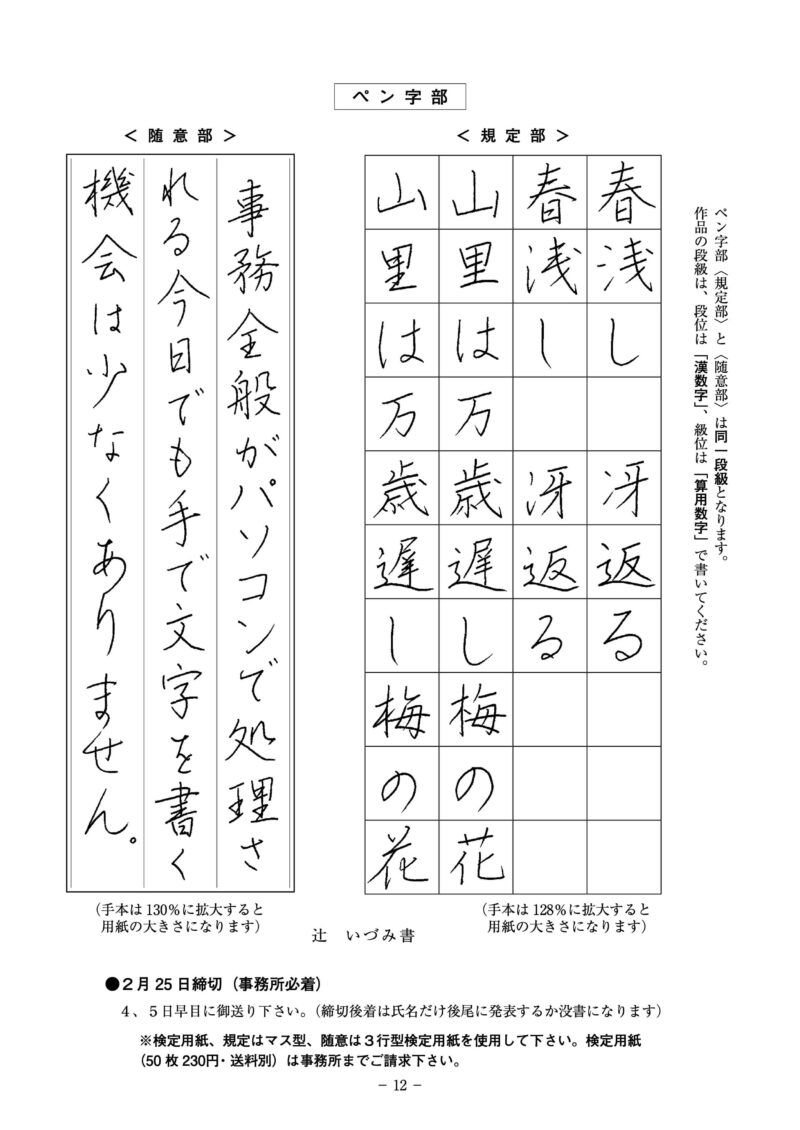 ペン字部
ペン字部〈規定部〉と〈随意部〉は同一段級となります。
作品の段級は、段位は「漢数字」、級位は「算用数字」で書いてください。
＜規定部＞
春浅し 冴返る
春浅し 冴返る
山里は万歳遅し梅の花
山里は万歳遅し梅の花
（手本は128％に拡大すると
用紙の大きさになります）
＜随意部＞
事務全般がパソコンで処理さ
れる今日でも手で文字を書く
機会は少なくありません。
（手本は130％に拡大すると
用紙の大きさになります）
辻　いづみ書
●２月25日締切（事務所必着）
４、５日早目に御送り下さい。（締切後着は氏名だけ後尾に発表するか没書になります）
※検定用紙、規定はマス型、随意は３行型検定用紙を使用して下さい。検定用紙
（50枚230円・送料別）は事務所までご請求下さい。
− 12 −